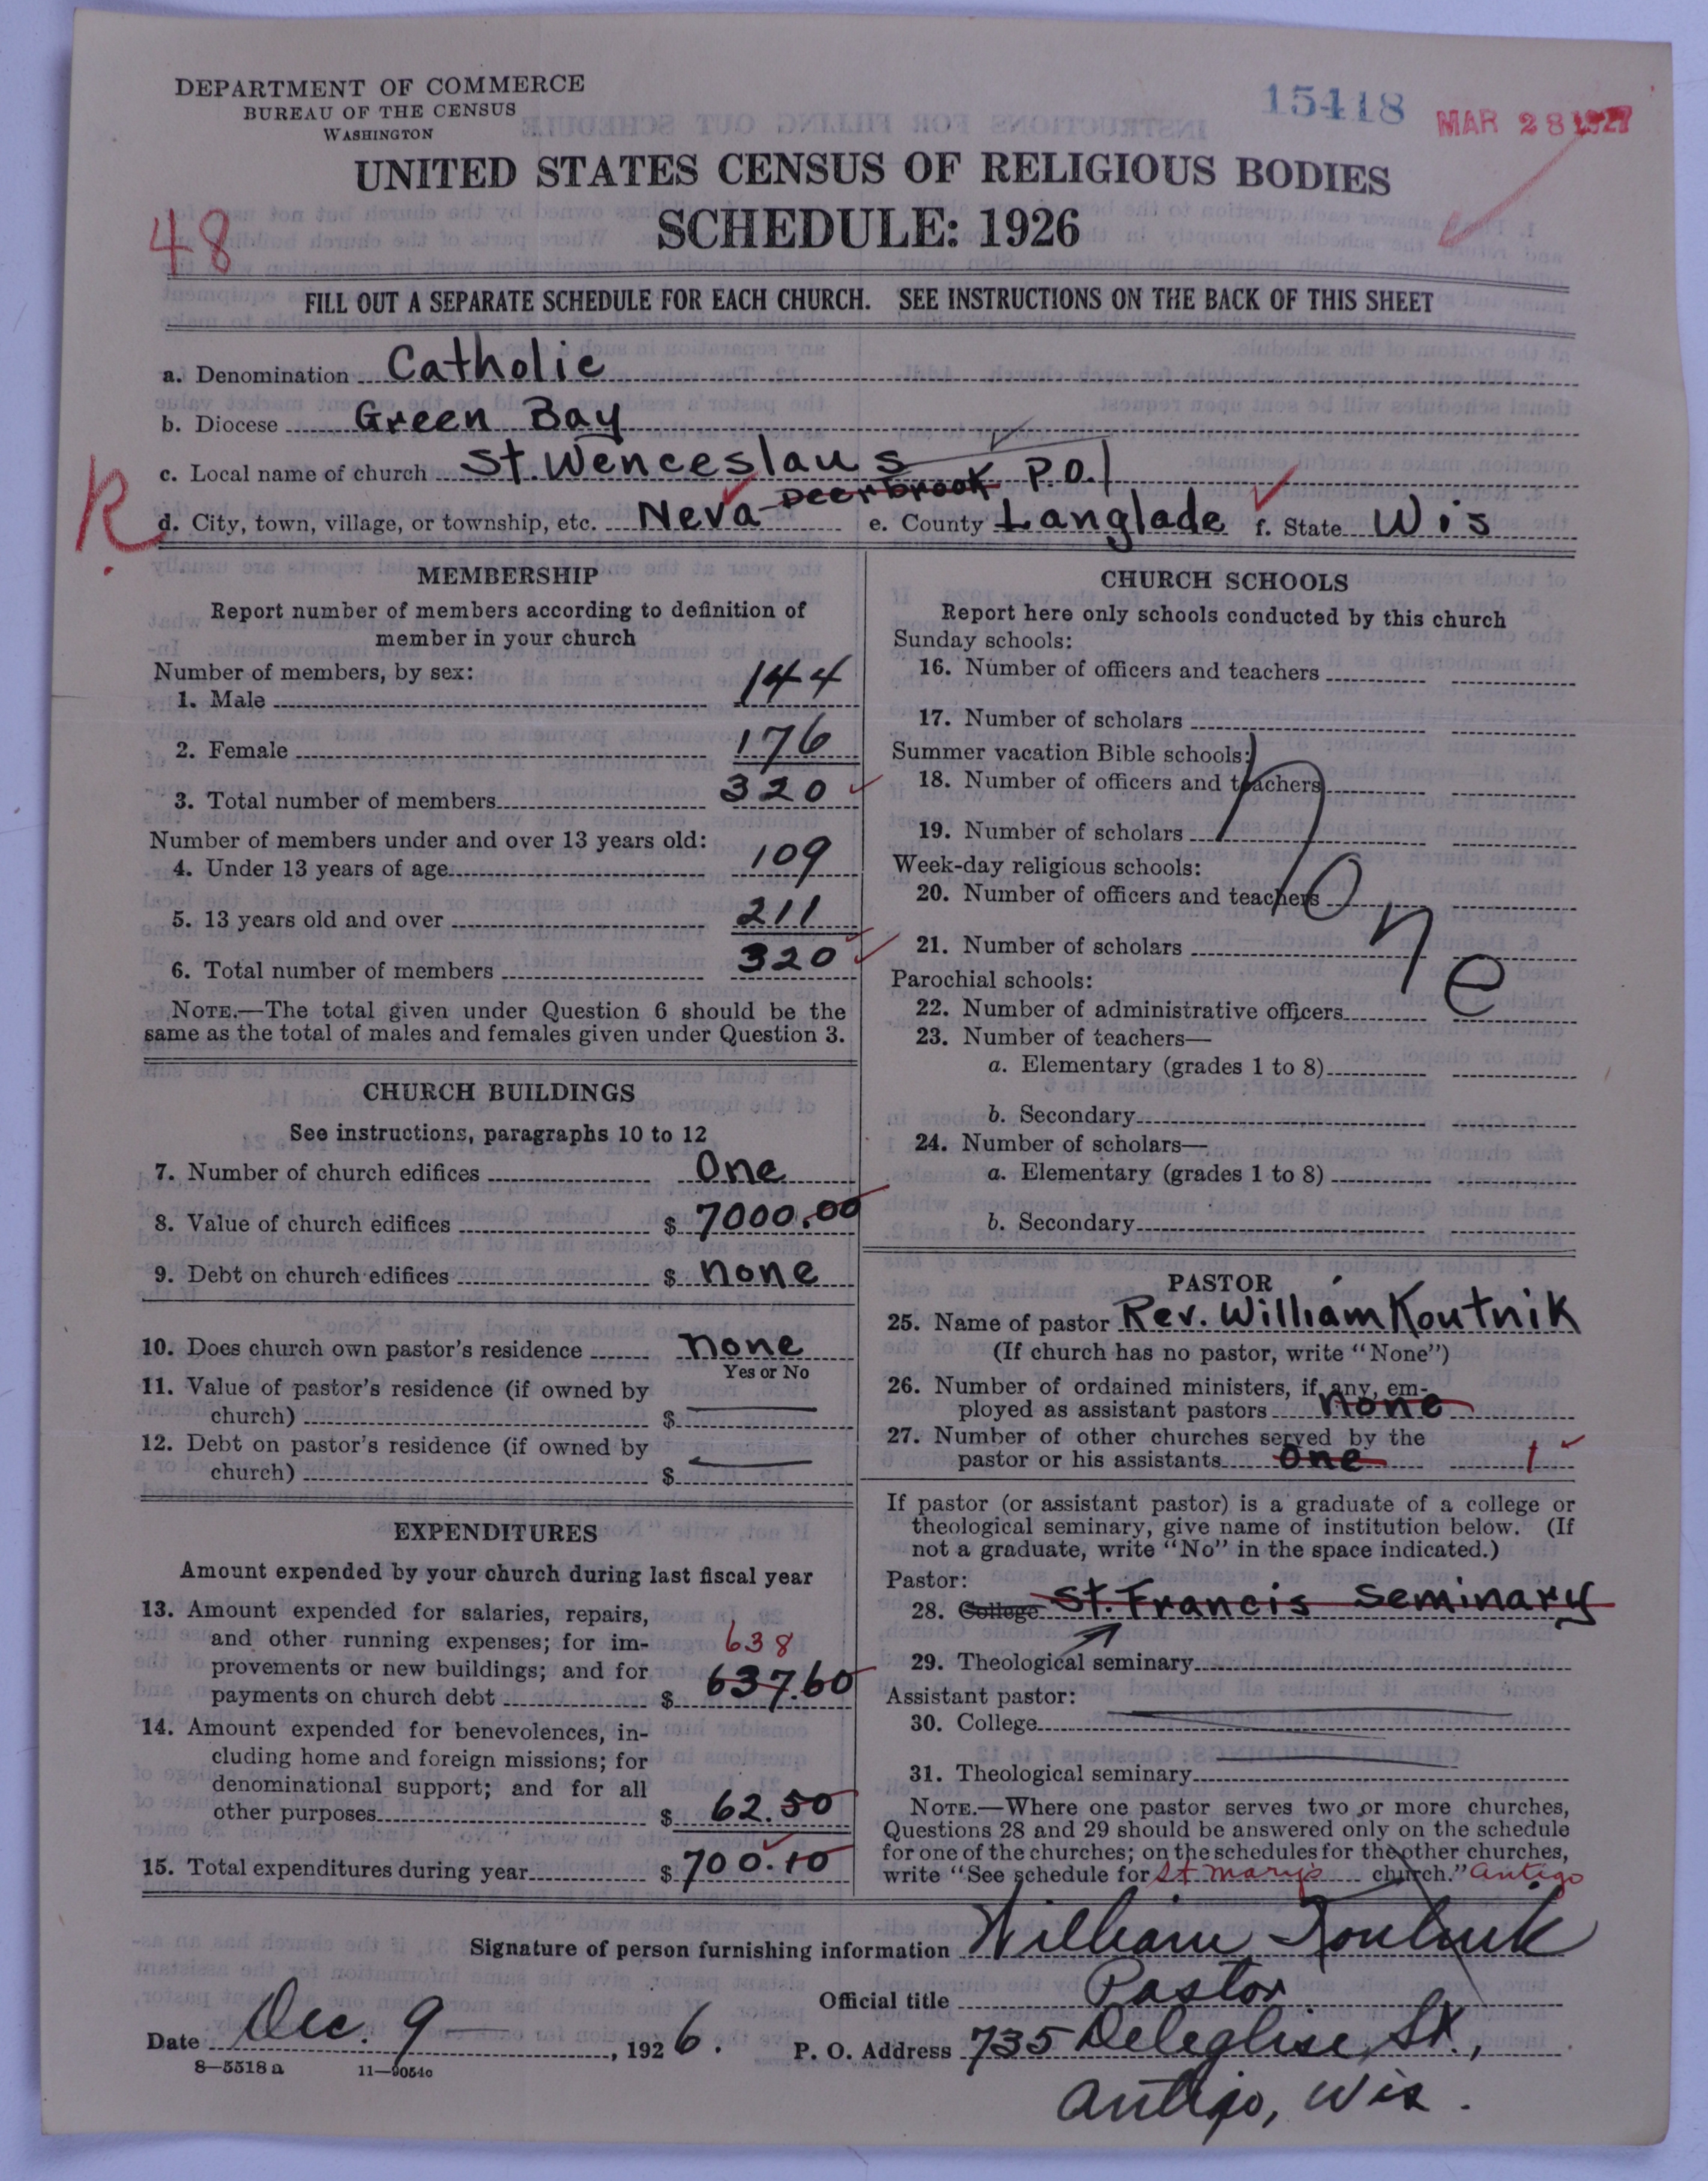 DEPARTMENT OF COMMERCE
BUREAU OF THE CENSUS
WASHINGTON
15418
MAR 28 1927
UNITED STATES CENSUS OF RELIGIOUS BODIES
SCHEDULE: 1926
48
FILL OUT A SEPARATE SCHEDULE FOR EACH CHURCH. SEE INSTRUCTIONS ON THE BACK OF THIS SHEET
a. Denomination Catholic
b. Diocese Green Bay
c. Local name of church St. Wenceslaus
R.
Deerbrook P.O.
d. City, town, village, or township, etc. Neva e. County Langlade f. State Wis
MEMBERSHIP
Report number of members according to definition of
member in your church
Number of members, by sex:
1. Male 144
2. Female 176
3. Total number of members 320
Number of members under and over 13 years old:
4. Under 13 years of age 109
5. 13 years old and over 211
6. Total number of members 320
NOTE.—The total given under Question 6 should be the
same as the total of males and females given under Question 3.
CHURCH BUILDINGS
See instructions, paragraphs 10 to 12
7. Number of church edifices One
8. Value of church edifices $ 7000.00
9. Debt on church edifices $ none
10. Does church own pastor's residence none
Yes or No
11. Value of pastor's residence (if owned by
church) $
12. Debt on pastor's residence (if owned by
church) $
EXPENDITURES
Amount expended by your church during last fiscal year
13. Amount expended for salaries, repairs,
and other running expenses; for im- 638
provements or new buildings; and for
payments on church debt $ 637.60
14. Amount expended for benevolences, in-
cluding home and foreign missions; for
denominational support; and for all
other purposes $ 62.50
15. Total expenditures during year $ 700.10
CHURCH SCHOOLS
Report here only schools conducted by this church
Sunday schools:
16. Number of officers and teachers
17. Number of scholars
Summer vacation Bible schools:
18. Number of officers and teachers
19. Number of scholars
Week-day religious schools:
20. Number of officers and teachers
none
21. Number of scholars
Parochial schools:
22. Number of administrative officers
23. Number of teachers—
a. Elementary (grades 1 to 8)
b. Secondary
24. Number of scholars—
a. Elementary (grades 1 to 8)
b. Secondary
PASTOR
25. Name of pastor Rev. William Koutnik
(If church has no pastor, write "None")
26. Number of ordained ministers, if any, em-
ployed as assistant pastors none
27. Number of other churches served by the
pastor or his assistants one 1
If pastor (or assistant pastor) is a graduate of a college or
theological seminary, give name of institution below. (If
not a graduate, write "No" in the space indicated.)
Pastor:
28. College St. Francis Seminary
29. Theological seminary
Assistant pastor:
30. College
31. Theological seminary
NOTE.—Where one pastor serves two or more churches,
Questions 28 and 29 should be answered only on the schedule
for one of the churches; on the schedules for the other churches,
write "See schedule for St Mary's church." Antigo
Signature of person furnishing information William Koutnik
Official title Pastor
Date Dec. 9, 1926. P. O. Address 735 Deleglise St.,
Antigo, Wis.
8—5518 a 11—9054o